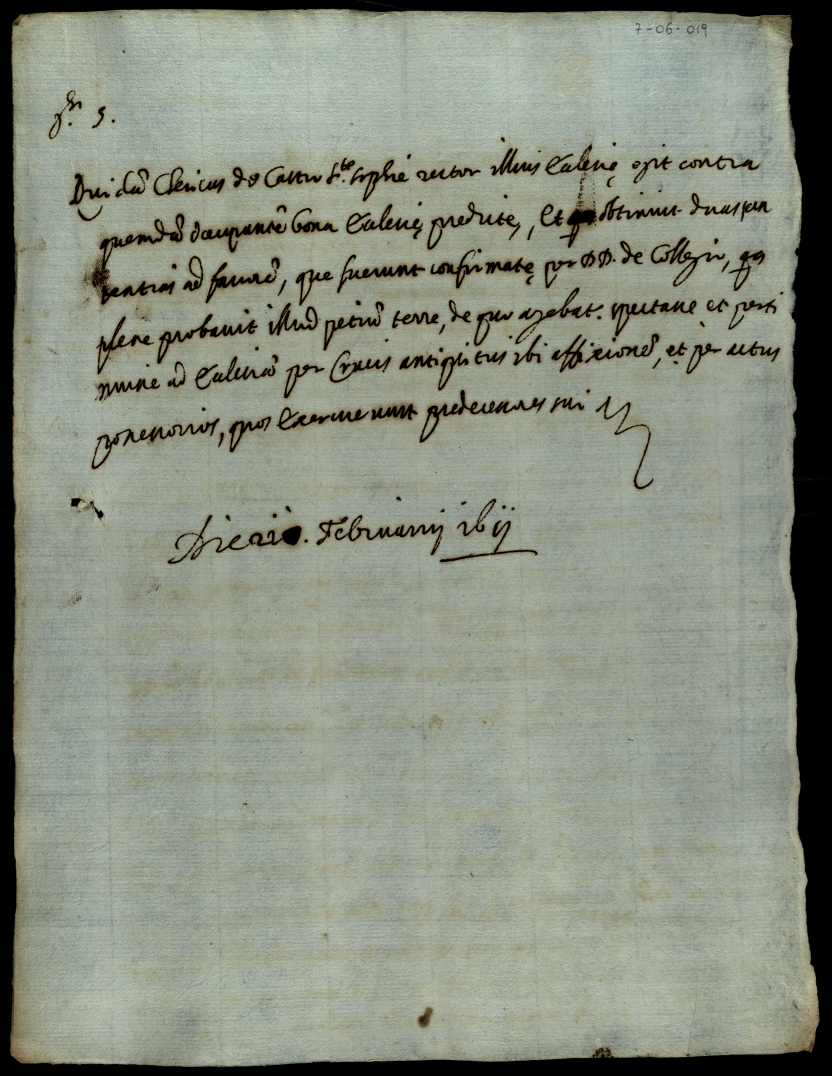 7-06-019
5.
Quidã Clericus de Castro S.te sophie rector illius Ecclesię egit contra
quemdã occupantẽ bona Ecclesię predictę, et obtinuit duas sen
tentias ad favorẽ, que fuerunt confirmatę per DD. de Collegio,
plene probavit illud petiũ terre, de quo agebat.r spectare et perti
nuisse ad Ecclesiã per Crucis antiquitus ibi affixionẽ, et per actus
possessorios, quos exercuerunt predecessores sui
Die Februarij